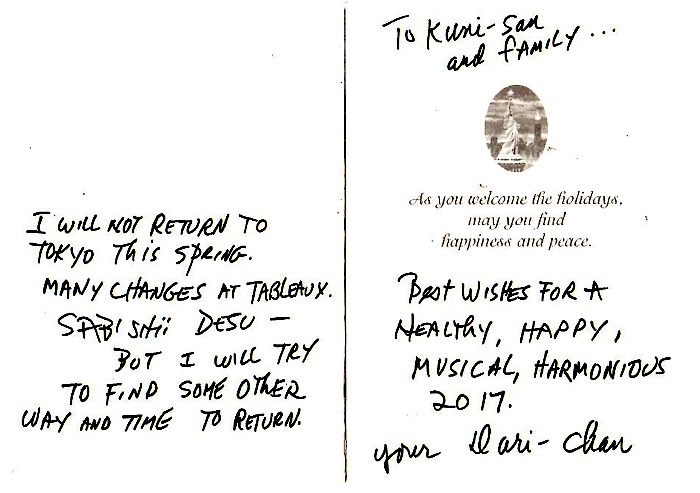 To Kuni-San
and FAMILY...
As you welcome the holidays,
may you find
happiness and peace.
Best WISHES FOR A
HEALTHY, HAPPY,
MUSICAL, HARMONIOUS
2017.
your Dari-Chan
I WILL NOT RETURN TO
TOKYO This SPRING.
MANY CHANGES AT TABLEAUX.
SABI SHii DESU —
BUT I WILL TRY
TO FIND SOME OTHER
WAY AND TIME TO RETURN.